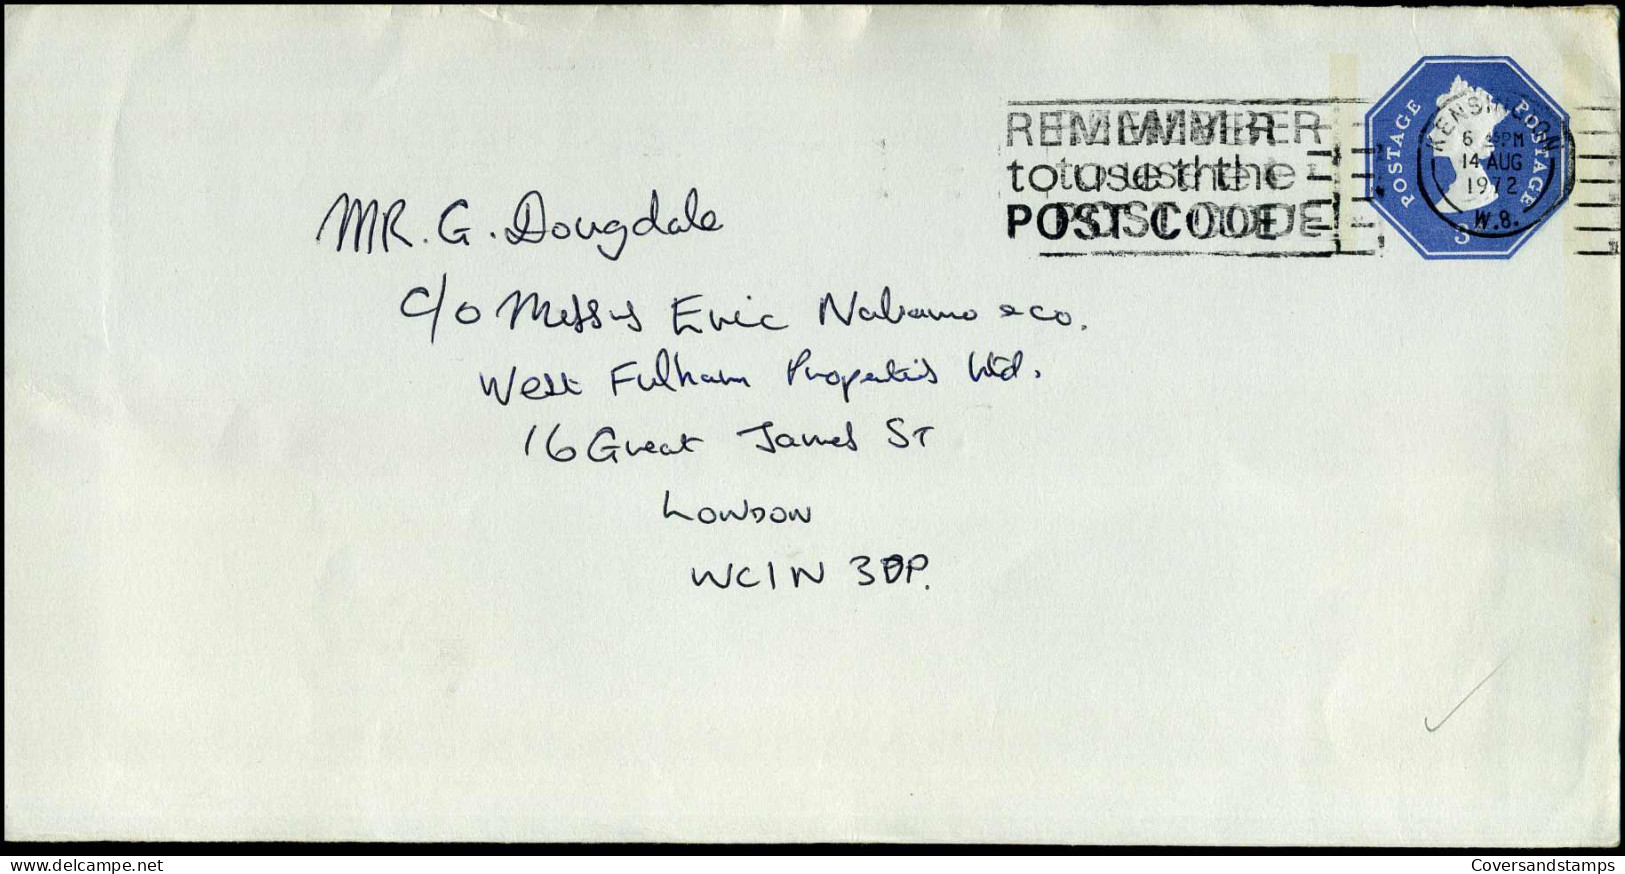 REMEMBER
to use the
POST CODE
POSTAGE
POSTAGE
3
KENSINGTON
6 45PM
14 AUG
1972
W.8.
MR. G. Dougdale
c/o Messrs Eric Nabarro & co.
West Fulham Properties Ltd.
16 Great James St
LONDON
WC1N 3DP.
Coversandstamps